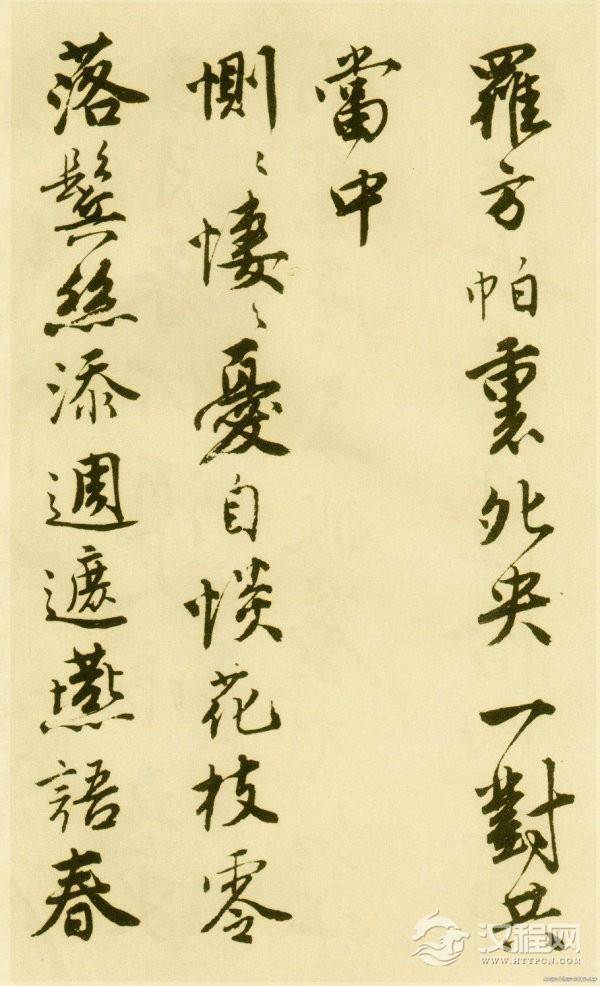 羅方帕裹夗央一對
當中
惻〻悽〻憂自惔花枝零
落鬢絲添週遮燕語春
汉程网
WWW.HTTPCN.COM